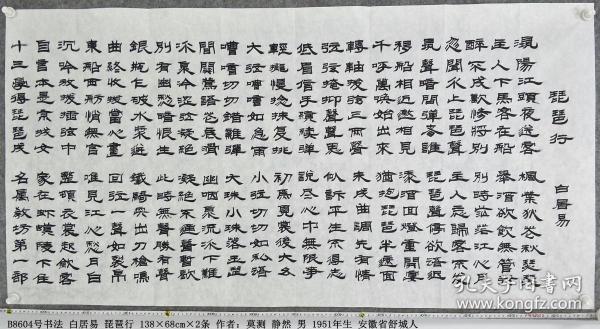 琵琶行 白居易
潯陽江頭夜送客 楓葉荻花秋瑟瑟
主人下馬客在船 舉酒欲飲無管弦
醉不成歡慘將別 別時茫茫江浸月
忽聞水上琵琶聲 主人忘歸客不發
尋聲暗問彈者誰 琵琶聲停欲語遲
移船相近邀相見 添酒回燈重開宴
千呼萬喚始出來 猶抱琵琶半遮面
轉軸撥弦三兩聲 未成曲調先有情
弦弦掩抑聲聲思 似訴平生不得志
低眉信手續續彈 說盡心中無限事
輕攏慢撚抹復挑 初為霓裳後六幺
大弦嘈嘈如急雨 小弦切切如私語
嘈嘈切切錯雜彈 大珠小珠落玉盤
間關鶯語花底滑 幽咽泉流冰下難
冰泉冷澀弦凝絕 凝絕不通聲暫歇
別有幽愁暗恨生 此時無聲勝有聲
銀瓶乍破水漿迸 鐵騎突出刀槍鳴
曲終收撥當心畫 四弦一聲如裂帛
東船西舫悄無言 唯見江心秋月白
沉吟放撥插弦中 整頓衣裳起斂容
自言本是京城女 家在蝦蟆陵下住
十三學得琵琶成 名屬教坊第一部
B8604号书法 白居易 琵琶行 138×68cm×2条 作者：莫测 静然 男 1951年生 安徽省舒城人
孔夫子旧书网
www.kongfz.com